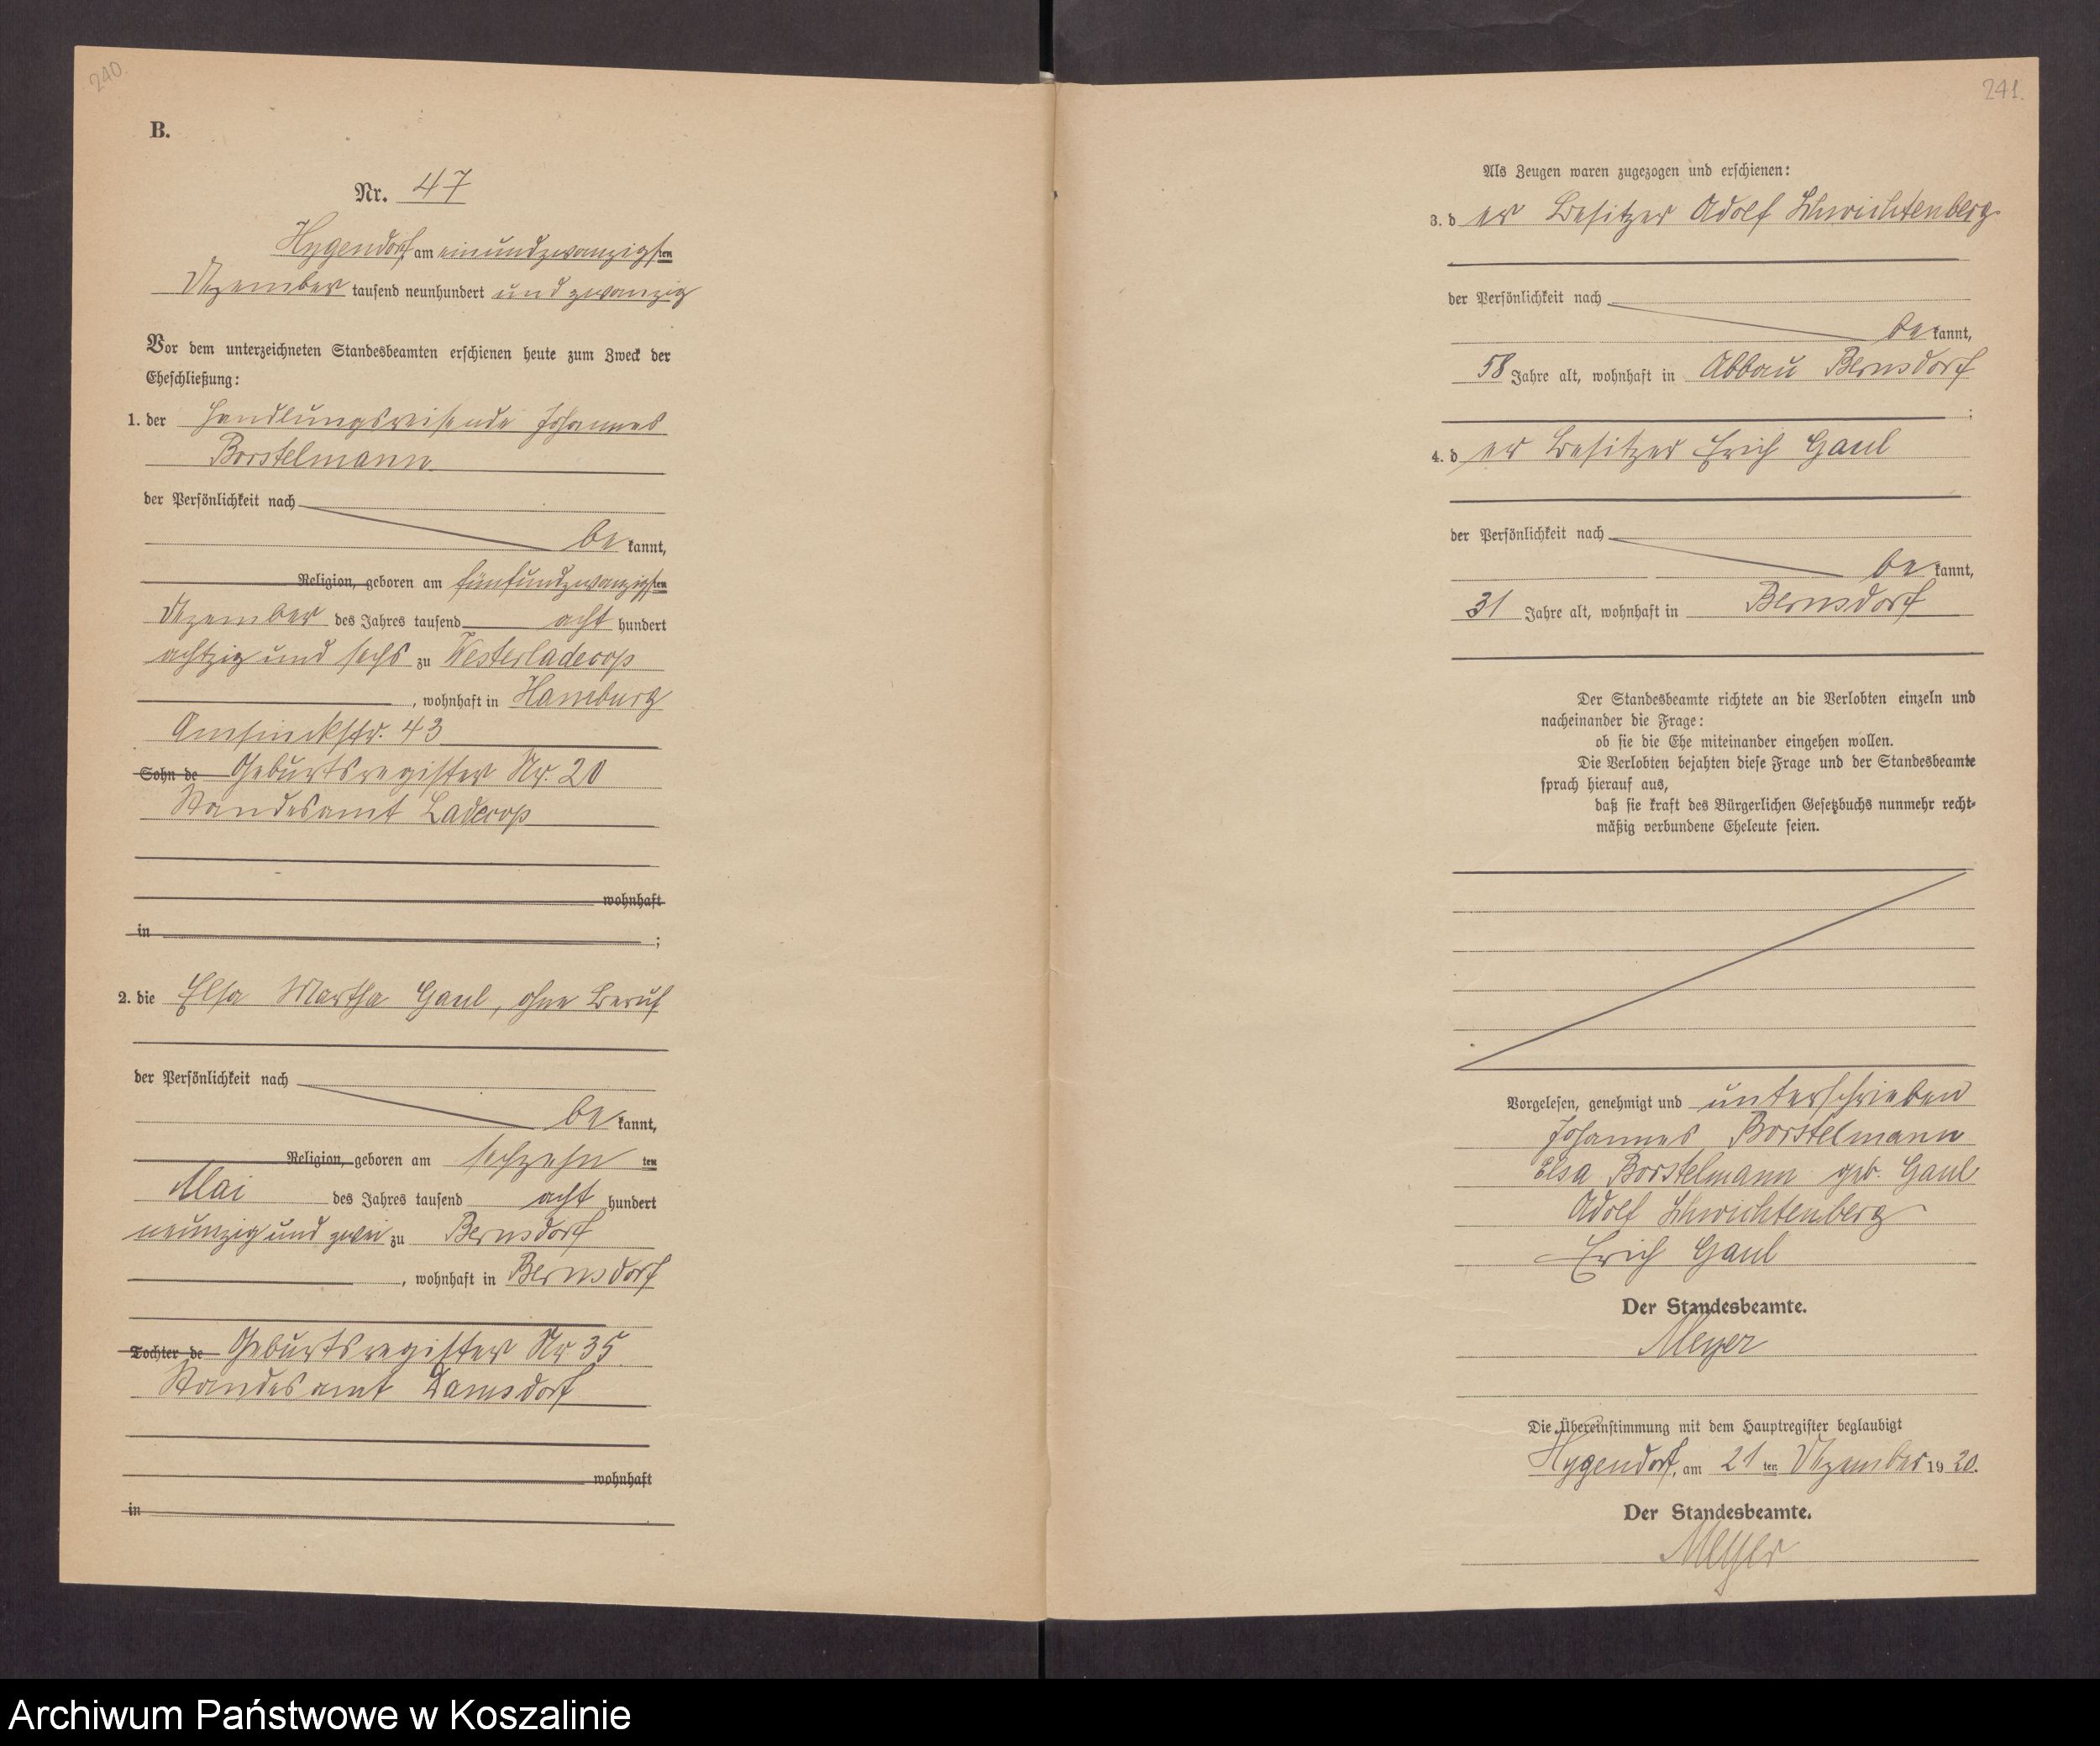 240.
B.
Nr. 47
Hygendorf, am einundzwanzigsten
Dezember tausend neunhundert und zwanzig
Vor dem unterzeichneten Standesbeamten erschienen heute zum Zweck der
Eheschließung:
1. der Handlungsreisende Johannes
Borstelmann
der Persönlichkeit nach
be kannt,
Religion, geboren am fünfundzwanzigsten
Dezember des Jahres tausend acht hundert
achtzig und sechs zu Westerladecop
, wohnhaft in Hamburg
Amsinckstr. 43
Sohn de Geburtsregister Nr. 20
Standesamt Ladecop
wohnhaft
in ;
2. die Elsa Martha Gaul, ohne Beruf
der Persönlichkeit nach
be kannt,
Religion, geboren am sechzehn ten
Mai des Jahres tausend acht hundert
neunzig und zwei zu Bernsdorf
, wohnhaft in Bernsdorf
Tochter de Geburtsregister Nr 35
Standesamt Damsdorf
wohnhaft
in
241.
Als Zeugen waren zugezogen und erschienen:
3. d er Besitzer Adolf Schwichtenberg
der Persönlichkeit nach
be kannt,
58 Jahre alt, wohnhaft in Abbau Bernsdorf
;
4. d er Besitzer Erich Gaul
der Persönlichkeit nach
be kannt,
31 Jahre alt, wohnhaft in Bernsdorf
Der Standesbeamte richtete an die Verlobten einzeln und
nacheinander die Frage:
ob sie die Ehe miteinander eingehen wollen.
Die Verlobten bejahten diese Frage und der Standesbeamte
sprach hierauf aus,
daß sie kraft des Bürgerlichen Gesetzbuchs nunmehr recht-
mäßig verbundene Eheleute seien.
Vorgelesen, genehmigt und unterschrieben
Johannes Borstelmann
Elsa Borstelmann geb. Gaul
Adolf Schwichtenberg
Erich Gaul
Der Standesbeamte.
Meyer
Die Übereinstimmung mit dem Hauptregister beglaubigt
Hygendorf, am 21 ten Dezember 19 20.
Der Standesbeamte.
Meyer
Archiwum Państwowe w Koszalinie